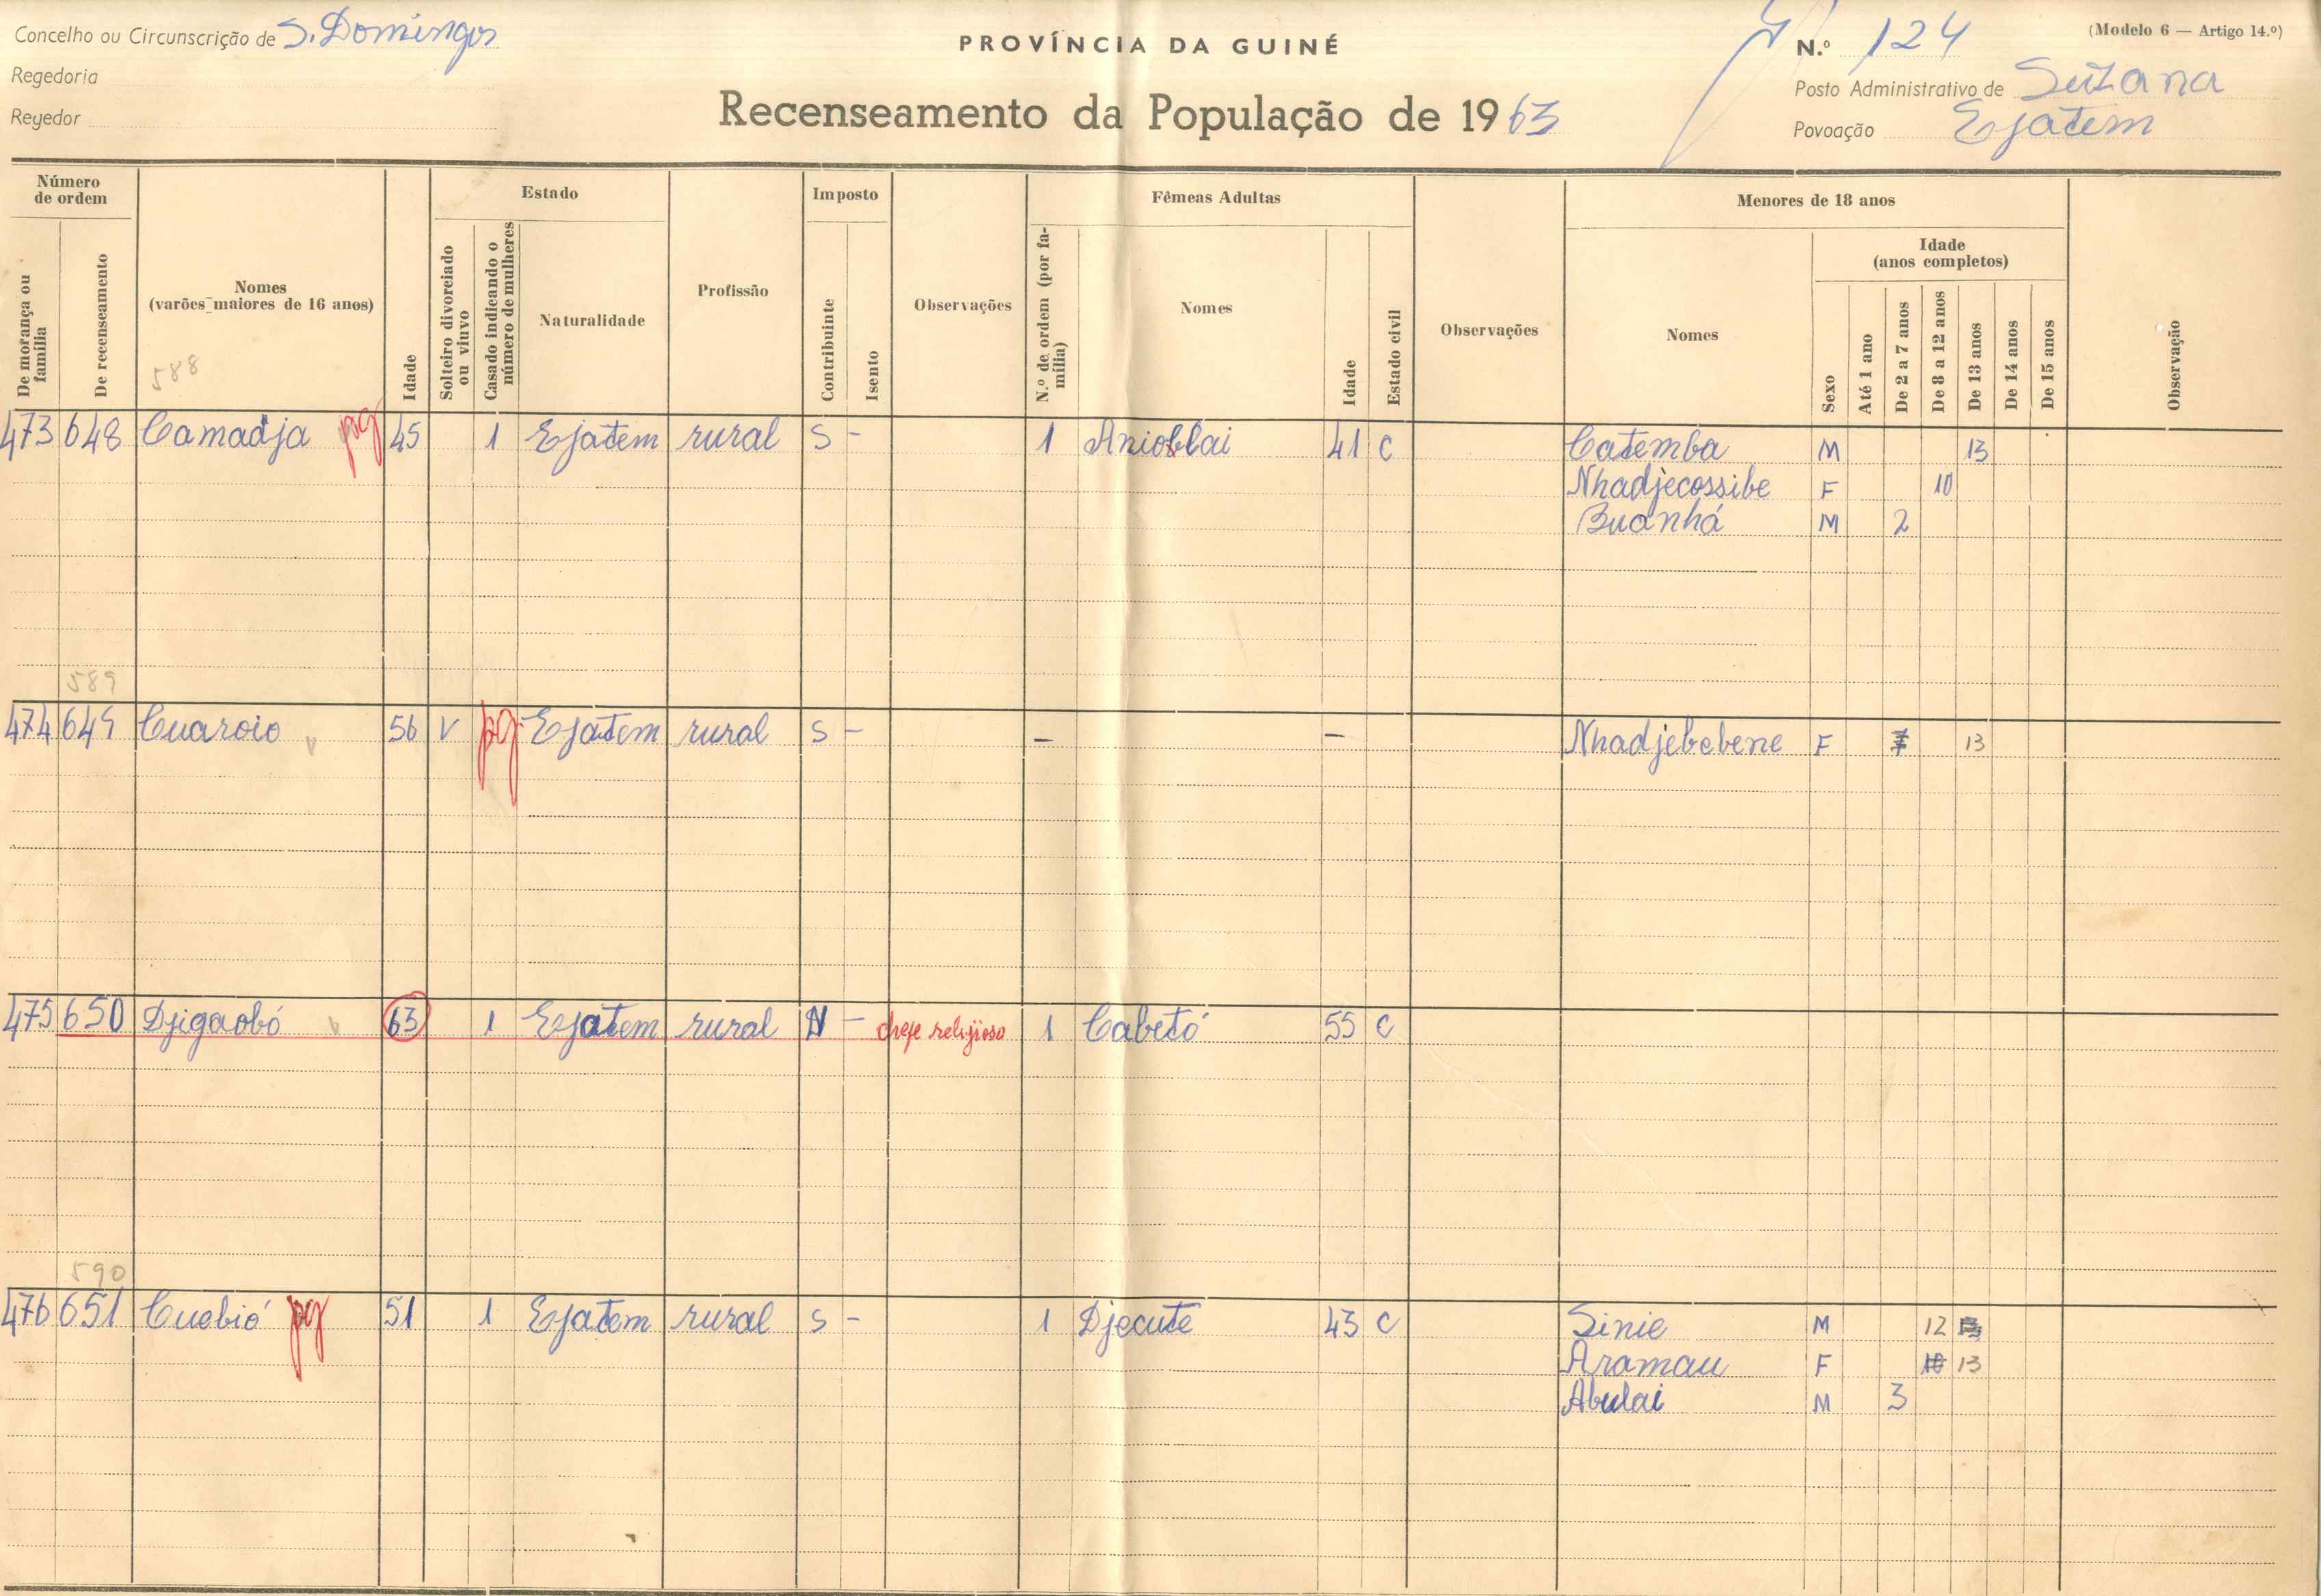 Concelho ou Circunscrição de S. Domingos
PROVÍNCIA DA GUINÉ
N.º 124
(Modelo 6 — Artigo 14.º)
Regedoria
Recenseamento da População de 1963
Posto Administrativo de Suzana
Regedor
Povoação Ejatem
Número de ordem
Estado
Imposto
Fêmeas Adultas
Menores de 18 anos
De morança ou família
De recenseamento
Nomes
(varões maiores de 16 anos)
588
Idade
Solteiro divorciado ou viuvo
Casado indicando o número de mulheres
Naturalidade
Profissão
Contribuinte
Isento
Observações
N.º de ordem (por família)
Nomes
Idade
Estado civil
Observações
Nomes
Sexo
Idade
(anos completos)
Até 1 ano
De 2 a 7 anos
De 8 a 12 anos
De 13 anos
De 14 anos
De 15 anos
Observação
473 648 Camadja pg 45 1 Ejatem rural S - 1 Anioblai 41 C Catemba M 13
Nhadjecossibe F 10
Buanhá M 2
589
474 649 Cuaroio v 56 V pg Ejatem rural S - - - Nhadjebebene F 7 13
475 650 Djigaobó v 63 1 Ejatem rural N - chefe religioso 1 Cabetó 55 C
590
476 651 Cuebió pg 51 1 Ejatem rural S - 1 Djecute 43 C Sinie M 12 13
Aramau F 10 13
Abulai M 3